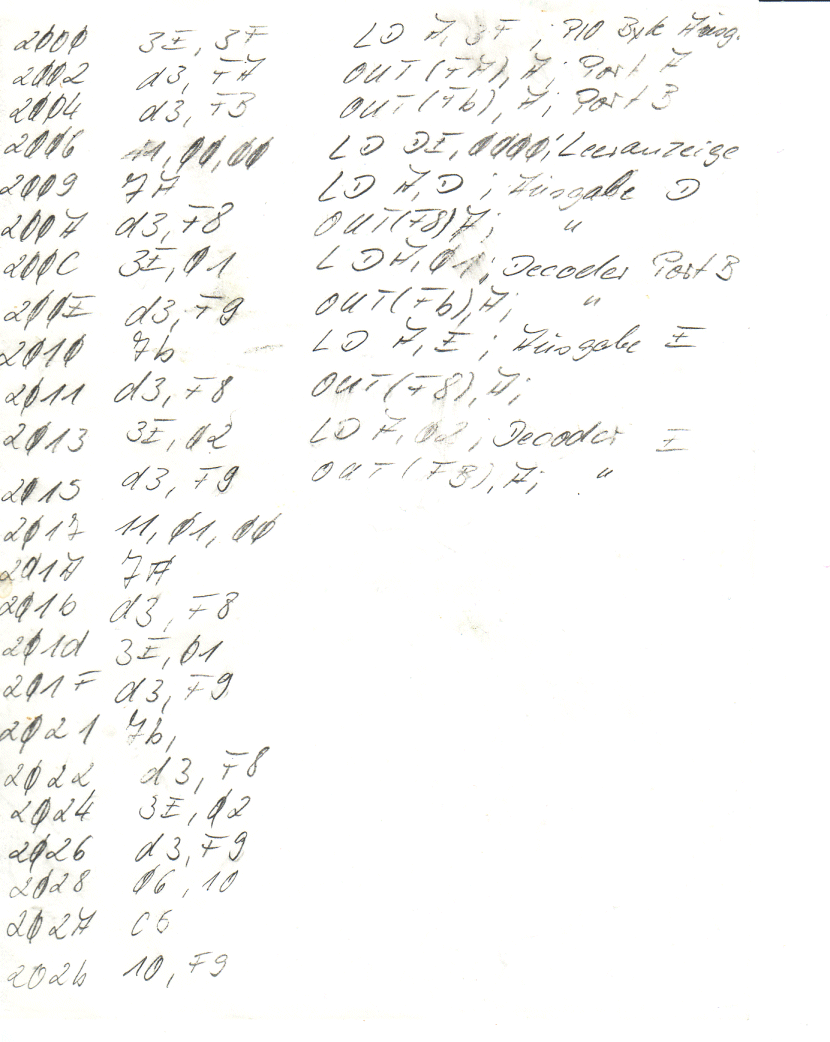 2000 3E, 3F LD A, 3F ; PIO Byte Ausg.
2002 d3, FA OUT (FA), A; Port A
2004 d3, FB OUT (Fb), A; Port B
2006 11, 00, 00 LD DE, 0000; Leeranzeige
2009 7A LD A, D ; Ausgabe D
200A d3, F8 OUT (F8) A; "
200C 3E, 01 LD A, 01; Decoder Port B
200E d3, F9 OUT (Fb), A; "
2010 7b LD A, E ; Ausgabe E
2011 d3, F8 OUT (F8), A;
2013 3E, 02 LD A, 02 ; Decoder E
2015 d3, F9 OUT (FB), A; "
2017 11, 01, 00
201A 7A
201b d3, F8
201d 3E, 01
201F d3, F9
2021 7b,
2022 d3, F8
2024 3E, 02
2026 d3, F9
2028 06, 10
202A C5
202b 10, F9